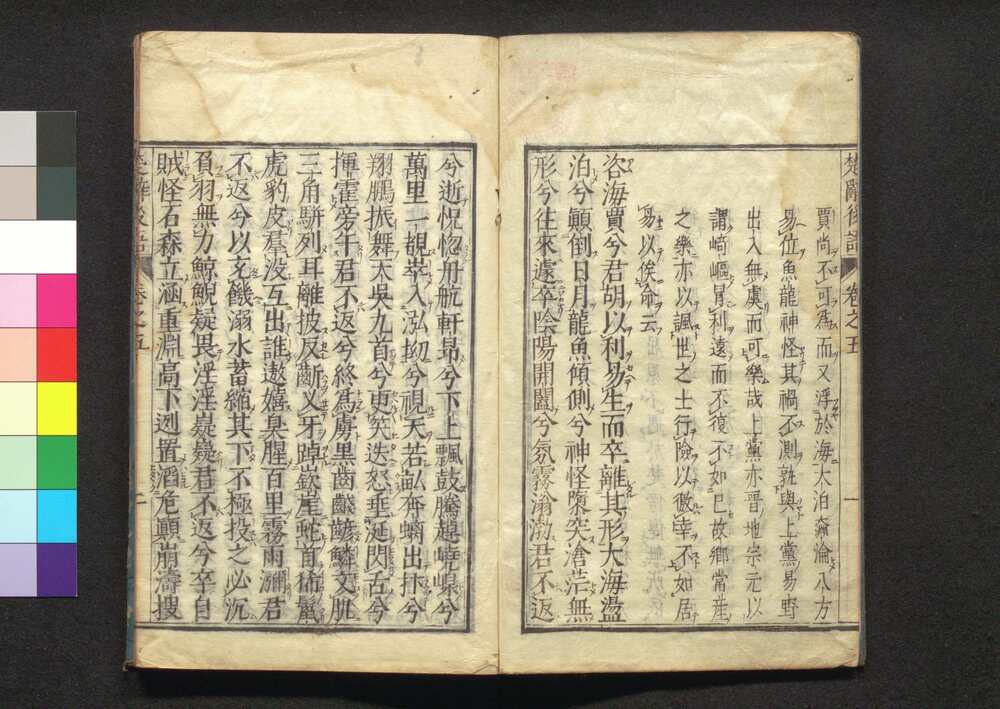 楚辭後語 卷之五 一
賈尚不可為而又浮於海大泊奫淪八方
易位魚龍神怪其禍不測孰與上黨易野
出入無虞而可樂哉上黨亦晋地宗元以
謂崎嶇冐利遠而不復不如已故鄉常産
之樂亦以諷世之士行險以徼幸不如居
易以俟命云
咨海賈兮君胡以利易生而卒離其形大海盪
泊兮顚倒日月龍魚傾側兮神怪隳突滄茫無
形兮往來遽卒陰陽開闔兮氛霧滃渤君不返
兮逝怳惚舟航軒昻兮下上飄鼓騰越嶢嵲兮
萬里一覩崒入泓坳兮視天若畝奔螭出抃兮
翔鵬振舞天吳九首兮更笑迭怒垂涎閃舌兮
揮霍旁午君不返兮終爲虜黑齒鱗文肌
三角駢列耳離披反齗叉牙踔嶔崖蛇首豨鬣
虎豹皮羣没互出誰遨嬉臭腥百里霧雨瀰君
不返兮以充饑溺水蓄縮其下不極投之必沉
負羽無力鯨鯢疑畏淫淫嶷嶷君不返兮卒自
賊怪石森立涵重淵高下迾置滔危顚崩濤搜
楚辭後語 卷之五